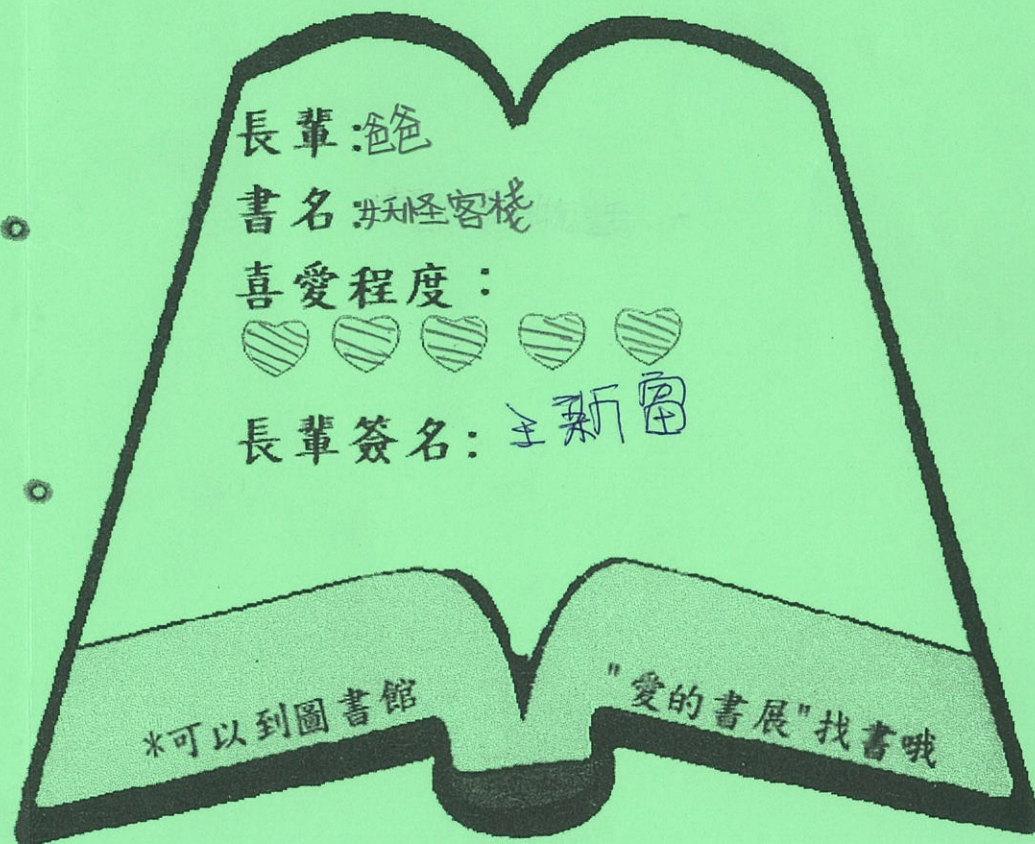 長輩:爸爸
書名:妖怪客棧
喜愛程度:
長輩簽名: 王新富
*可以到圖書館 "愛的書展"找書哦